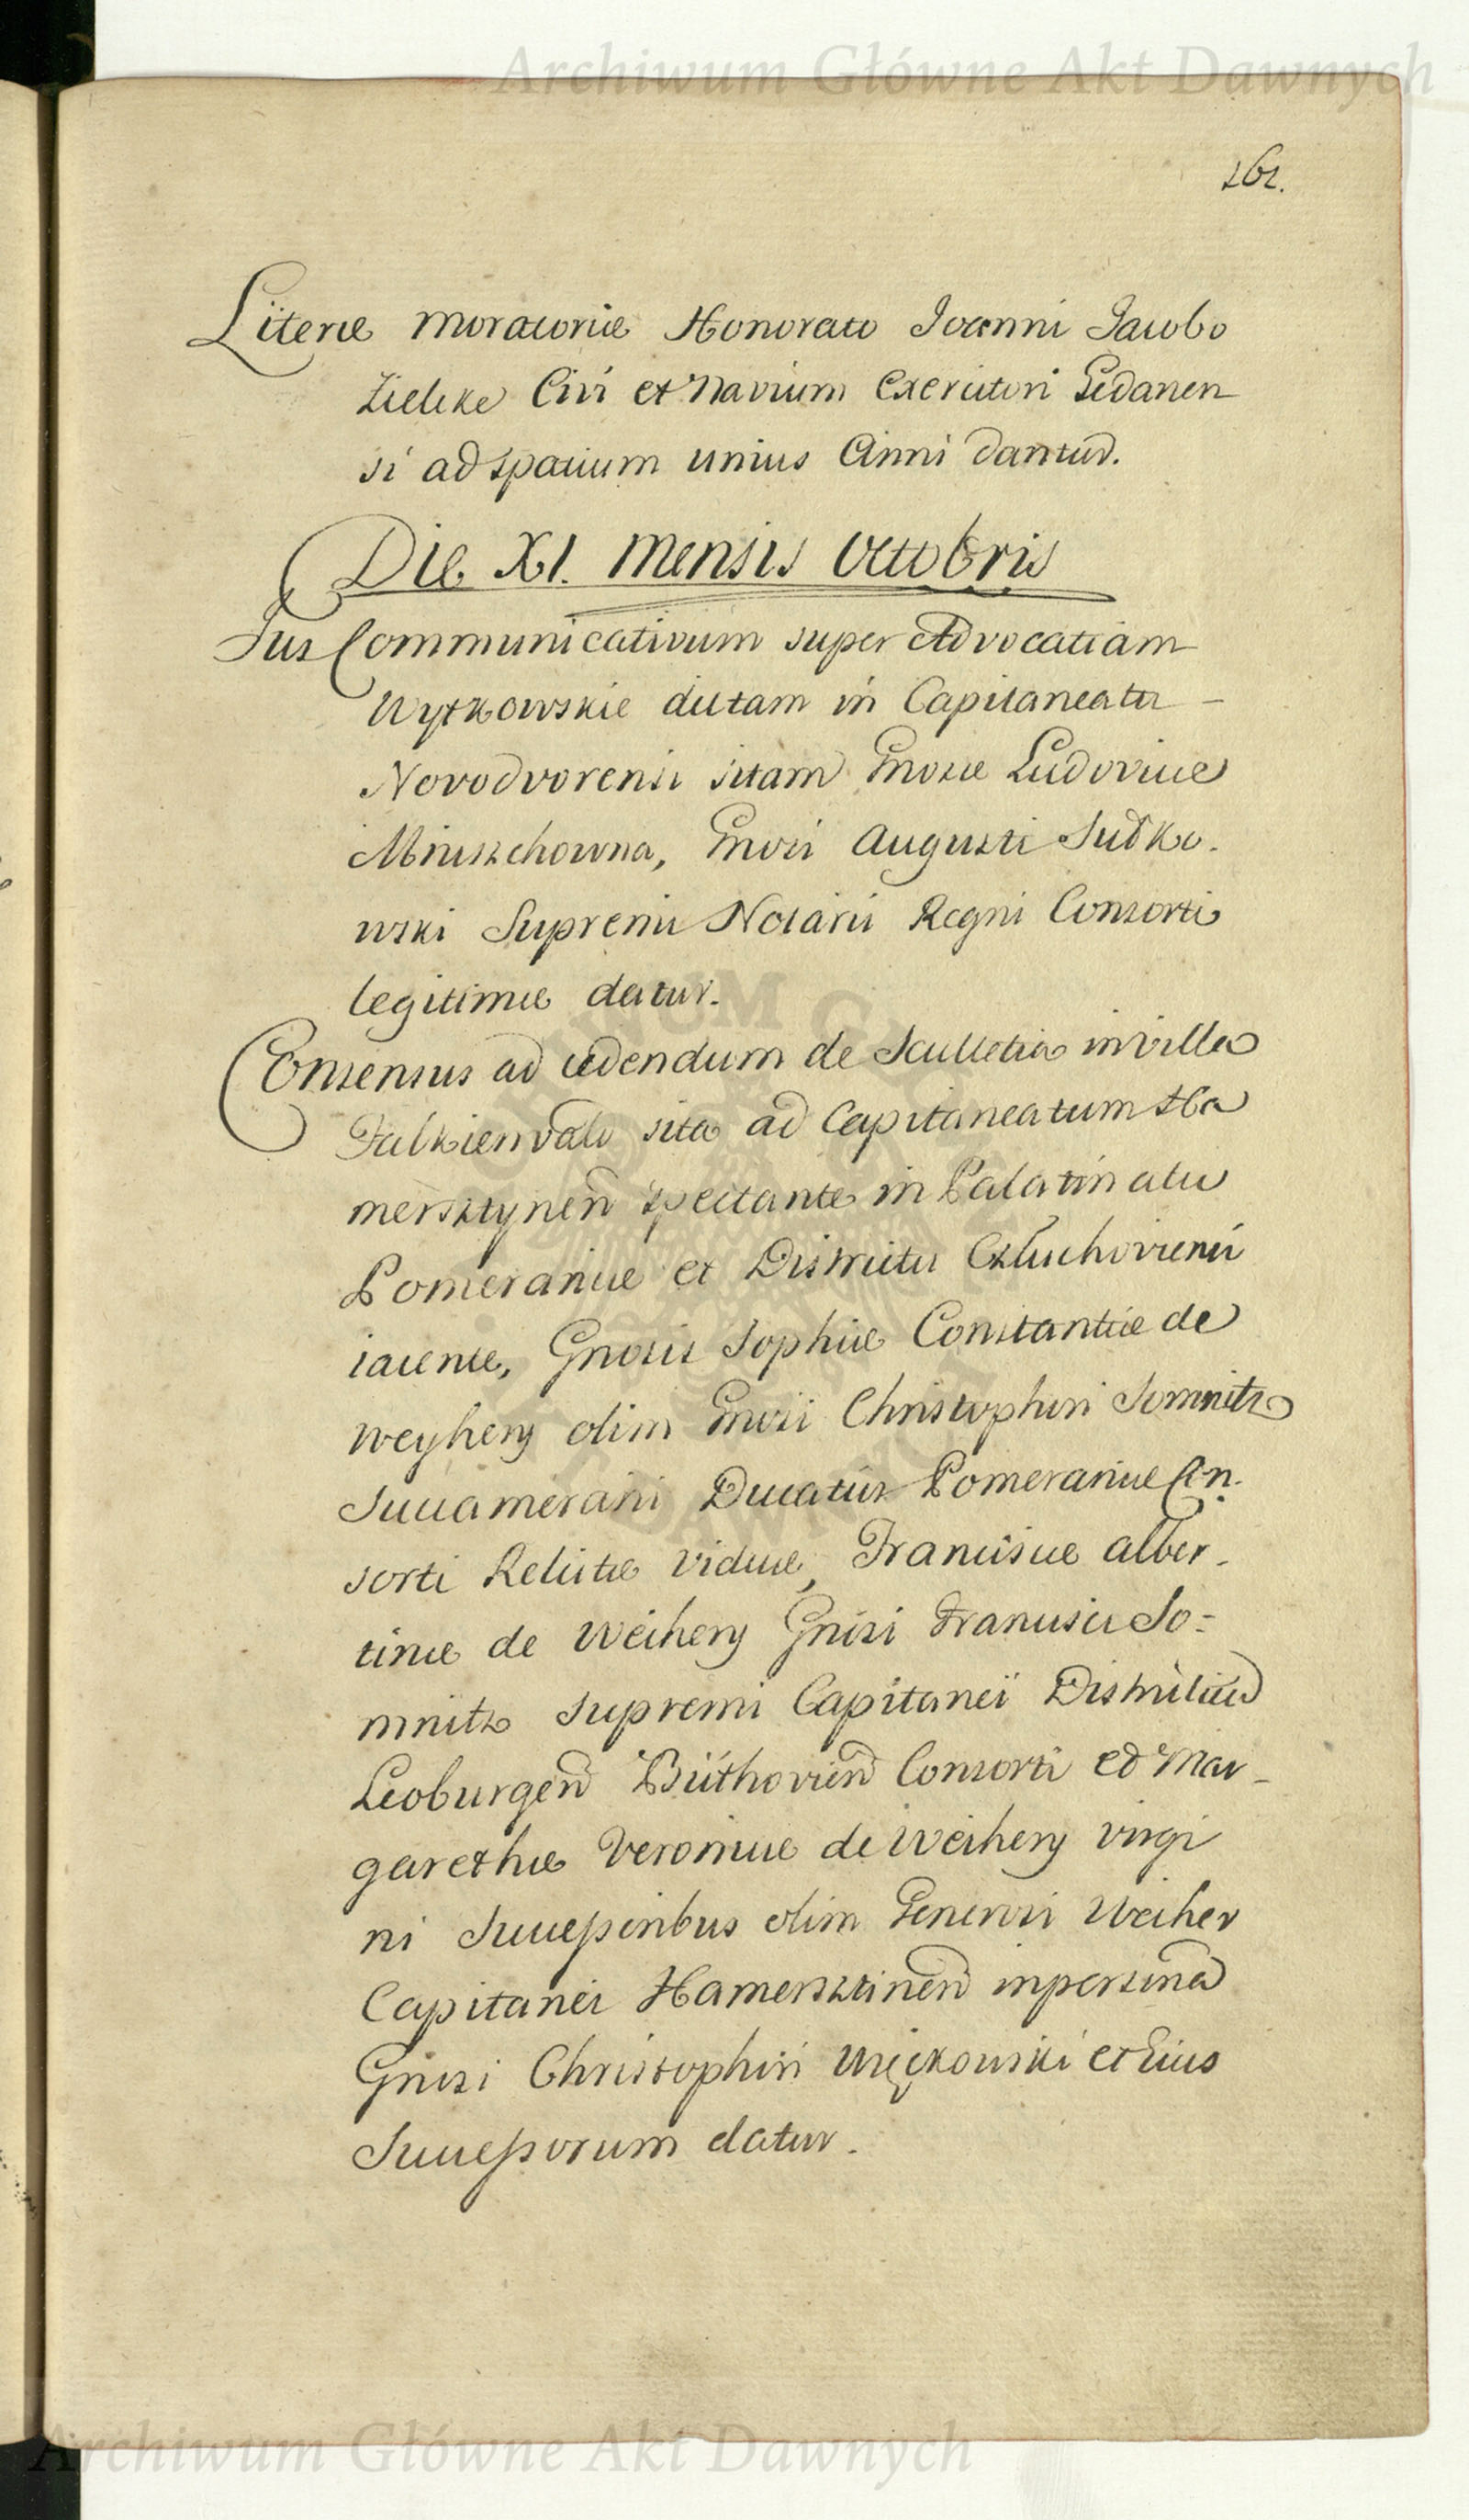 Archiwum Główne Akt Dawnych
161.
Literæ moratoriæ Honorato Joanni Jacobo
Zielcke Civi et Navium Exercitori Gedanen
si ad spatium unius Anni dantur.
Die XI. Mensis Octobris
Jus Communicativum super Advocatiam
Wytkowskie dictam in Capitaneatu
Novodvorensi sitam Gnosæ Ludovicæ
Mniszchowna, Gnosi Augusti Sudko.
wski Supremi Notarii Regni Consorti
legitimæ datur.
Consensus ad cedendum de Scultetia in villa
Falkienvald sita ad Capitaneatum Ha
mersztynen spectante in Palatinatu
Pomeraniæ et Districtu Człuchoviensi
iacente, Gnosis Sophiæ Constantiæ de
Weyhery olim Gnosi Christophori Somnitz
Succamerarii Ducatus Pomeraniæ Con.
sorti Relictæ Viduæ, Franciscæ Alber-
tinæ de Weihery Gnosi Francisci So-
mnitz Supremi Capitanei Districtuum
Leoburgen Büthovien Consorti ed Mar-
garethæ Veronicæ de Weihery virgi
ni Successoribus olim Generosi Weiher
Capitanei Hamersztinen in personam
Gnosi Christophori Mięckowski et Eius
Successorum datur.
Archiwum Główne Akt Dawnych